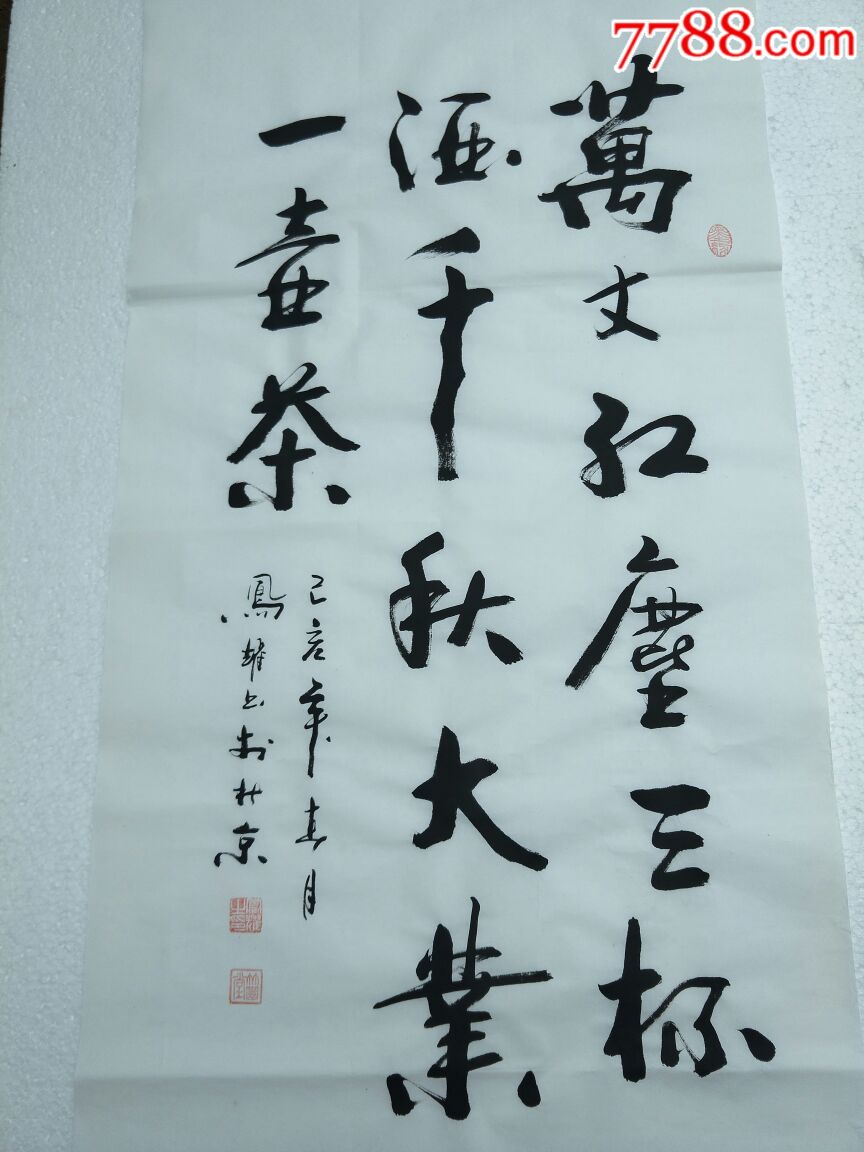 7788.com
萬丈红塵三杯
酒千秋大業
一壺茶
己亥年春月
鳳雄书於北京